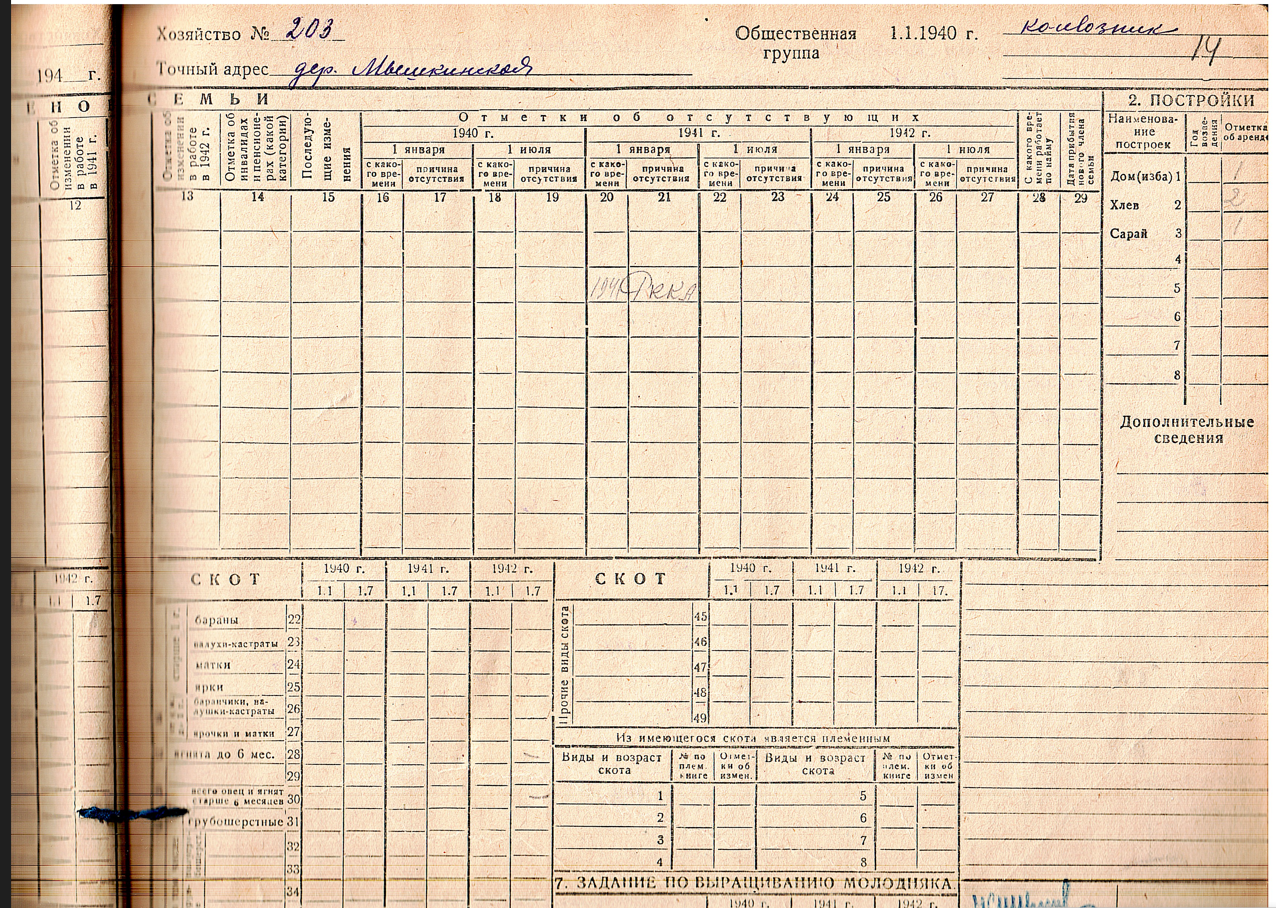 Хозяйство № 203
Общественная группа 1.1.1940 г. колхозник
14
194 г.
Точный адрес дер. Мышкинской
ЕНО
СЕМЬИ
2. ПОСТРОЙКИ
Отметка об изменении в работе в 1941 г.
Отметка об изменении в работе в 1942 г.
Отметка об инвалидах и пенсионерах (какой категории)
Последующие изменения
Отметки об отсутствующих
1940 г. 1941 г. 1942 г.
1 января 1 июля 1 января 1 июля 1 января 1 июля
с какого времени причина отсутствия с какого времени причина отсутствия с какого времени причина отсутствия с какого времени причина отсутствия с какого времени причина отсутствия с какого времени причина отсутствия
С какого времени работает по найму
Дата прибытия нового члена семьи
Наименование построек
Год возведения
Отметка об аренде
12 13 14 15 16 17 18 19 20 21 22 23 24 25 26 27 28 29
Дом(изба) 1 1
Хлев 2 2
Сарай 3 1
4
5
6
7
8
1941 РККА
Дополнительные сведения
1942 г.
1.1 1.7
СКОТ 1940 г. 1941 г. 1942 г.
1.1 1.7 1.1 1.7 1.1 1.7
старше 1 г.
бараны 22
валухи-кастраты 23
матки 24
ярки 25
баранчики, валушки-кастраты 26
ярочки и матки 27
ягнята до 6 мес. 28
29
всего овец и ягнят старше 6 месяцев 30
грубошерстные 31
32
33
34
СКОТ 1940 г. 1941 г. 1942 г.
1.1 1.7 1.1 1.7 1.1 17.
Прочие виды скота
45
46
47
48
49
Из имеющегося скота является племенным
Виды и возраст скота № по плем. книге Отметки об измен. Виды и возраст скота № по плем. книге Отметки об измен
1 5
2 6
3 7
4 8
7. ЗАДАНИЕ ПО ВЫРАЩИВАНИЮ МОЛОДНЯКА
1940 г. 1941 г. 1942 г.